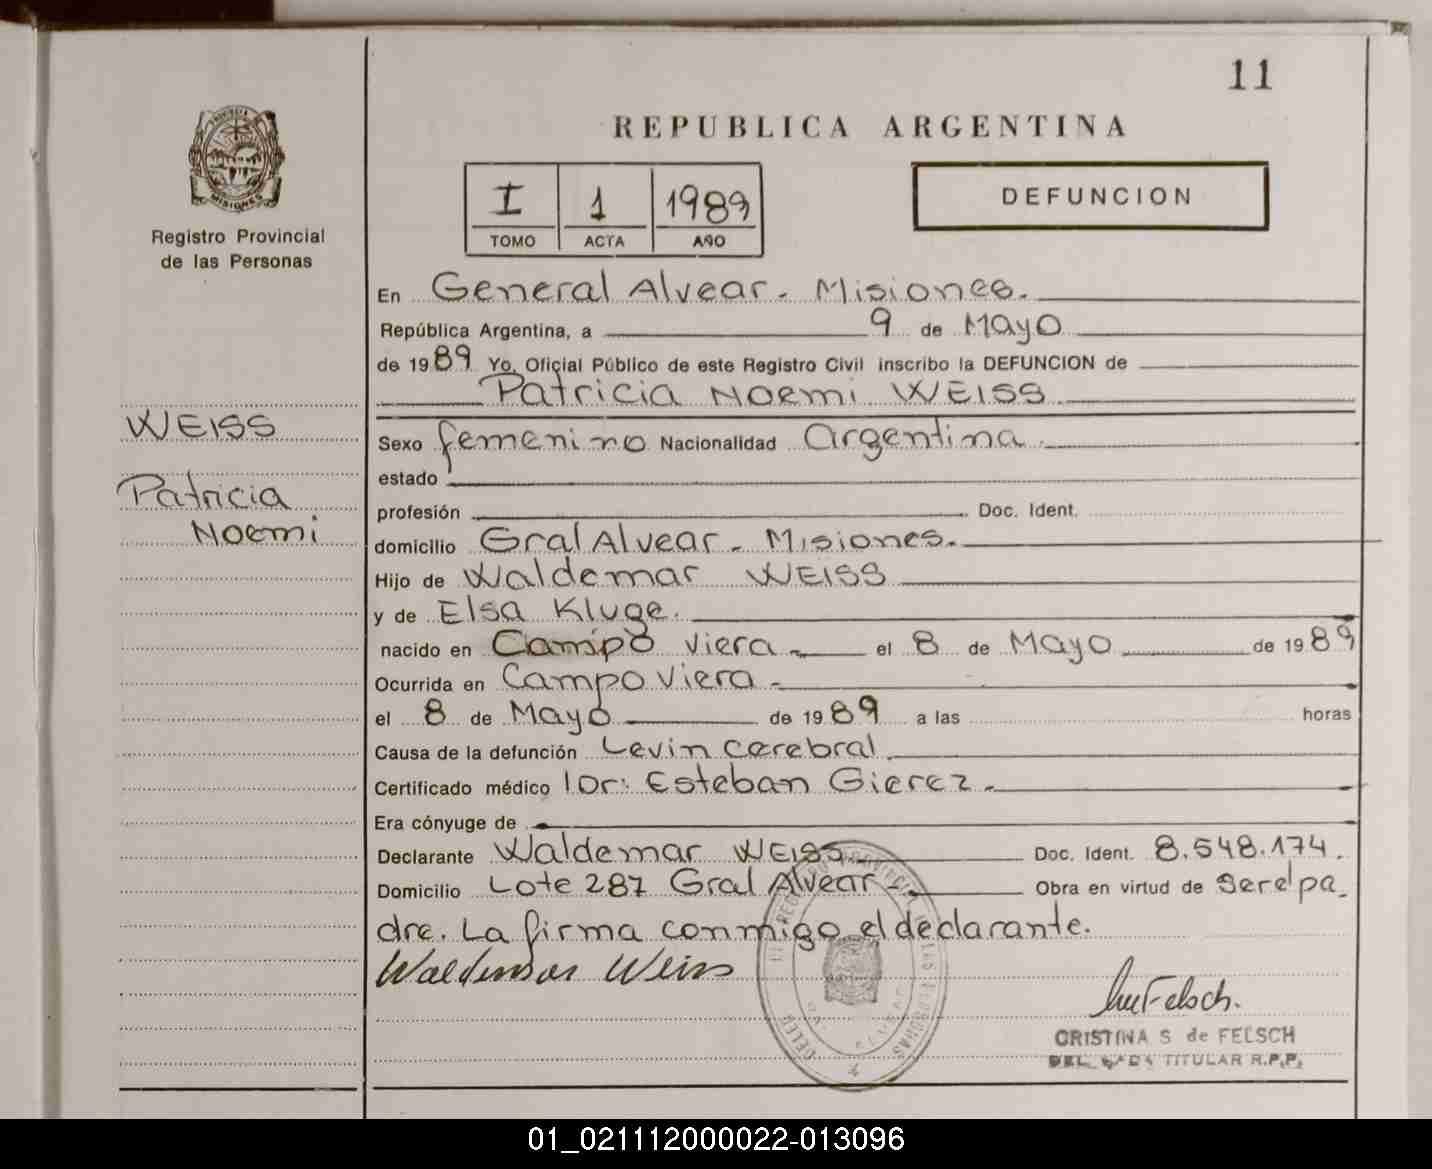 11
REPUBLICA ARGENTINA
PROVINCIA DE
MISIONES
Registro Provincial
de las Personas
I 1 1989
TOMO ACTA AÑO
DEFUNCION
En General Alvear - Misiones.
República Argentina, a 9 de Mayo
de 1989 Yo, Oficial Público de este Registro Civil inscribo la DEFUNCION de
Patricia Noemi WEISS
WEISS
Patricia
Noemi
Sexo femenino Nacionalidad Argentina
estado
profesión Doc. Ident.
domicilio Gral Alvear - Misiones.
Hijo de Waldemar WEISS
y de Elsa Kluge.
nacido en Campo Viera - el 8 de Mayo de 1989
Ocurrida en Campo Viera -
el 8 de Mayo de 1989 a las horas
Causa de la defunción Levin cerebral
Certificado médico Dr: Esteban Gierez -
Era cónyuge de
Declarante Waldemar WEISS Doc. Ident. 8.548.174.
Domicilio Lote 287 Gral Alvear - Obra en virtud de ser el pa_
dre. La firma conmigo el declarante.
Waldemar Weiss
CRISTINA S de FELSCH
TITULAR R.P.P.
01_021112000022-013096